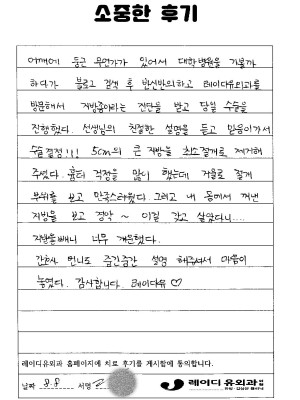 소중한 후기
어깨에 둥근 무언가가 있어서 대학병원을 가볼까
하다가 블로그 검색 후 반신반의하고 레이디유외과를
방문해서 지방종이라는 진단을 받고 당일 수술을
진행했다. 선생님의 친절한 설명을 듣고 믿음이 가서
수술 결정!!! 5cm의 큰 지방을 최소절개로 제거해
주셨다. 흉터 걱정을 많이 했는데 거울로 절개
부위를 보고 만족스러웠다. 그리고 내 몸에서 꺼낸
지방을 보고 경악 ~ 이걸 갖고 살았다니....
지방을 빼니 너무 개운했다.
간호사 언니도 중간중간 설명 해주셔서 마음이
놓였다. 감사합니다. 레이디유 ♡
레이디유외과 홈페이지에 치료 후기를 게시함에 동의합니다.
날짜 8.8 서명
레이디 유외과